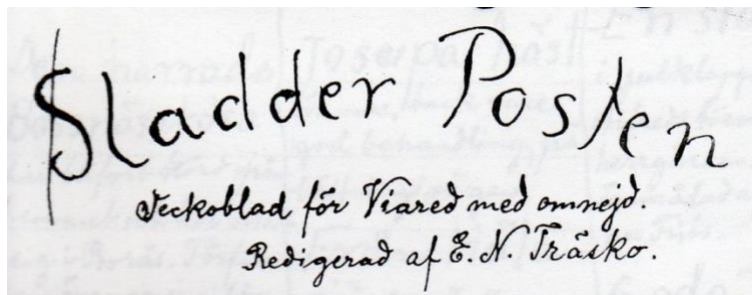 Sladder Posten
Veckoblad för Viared med omnejd.
Redigerad af E. N. Träsko.